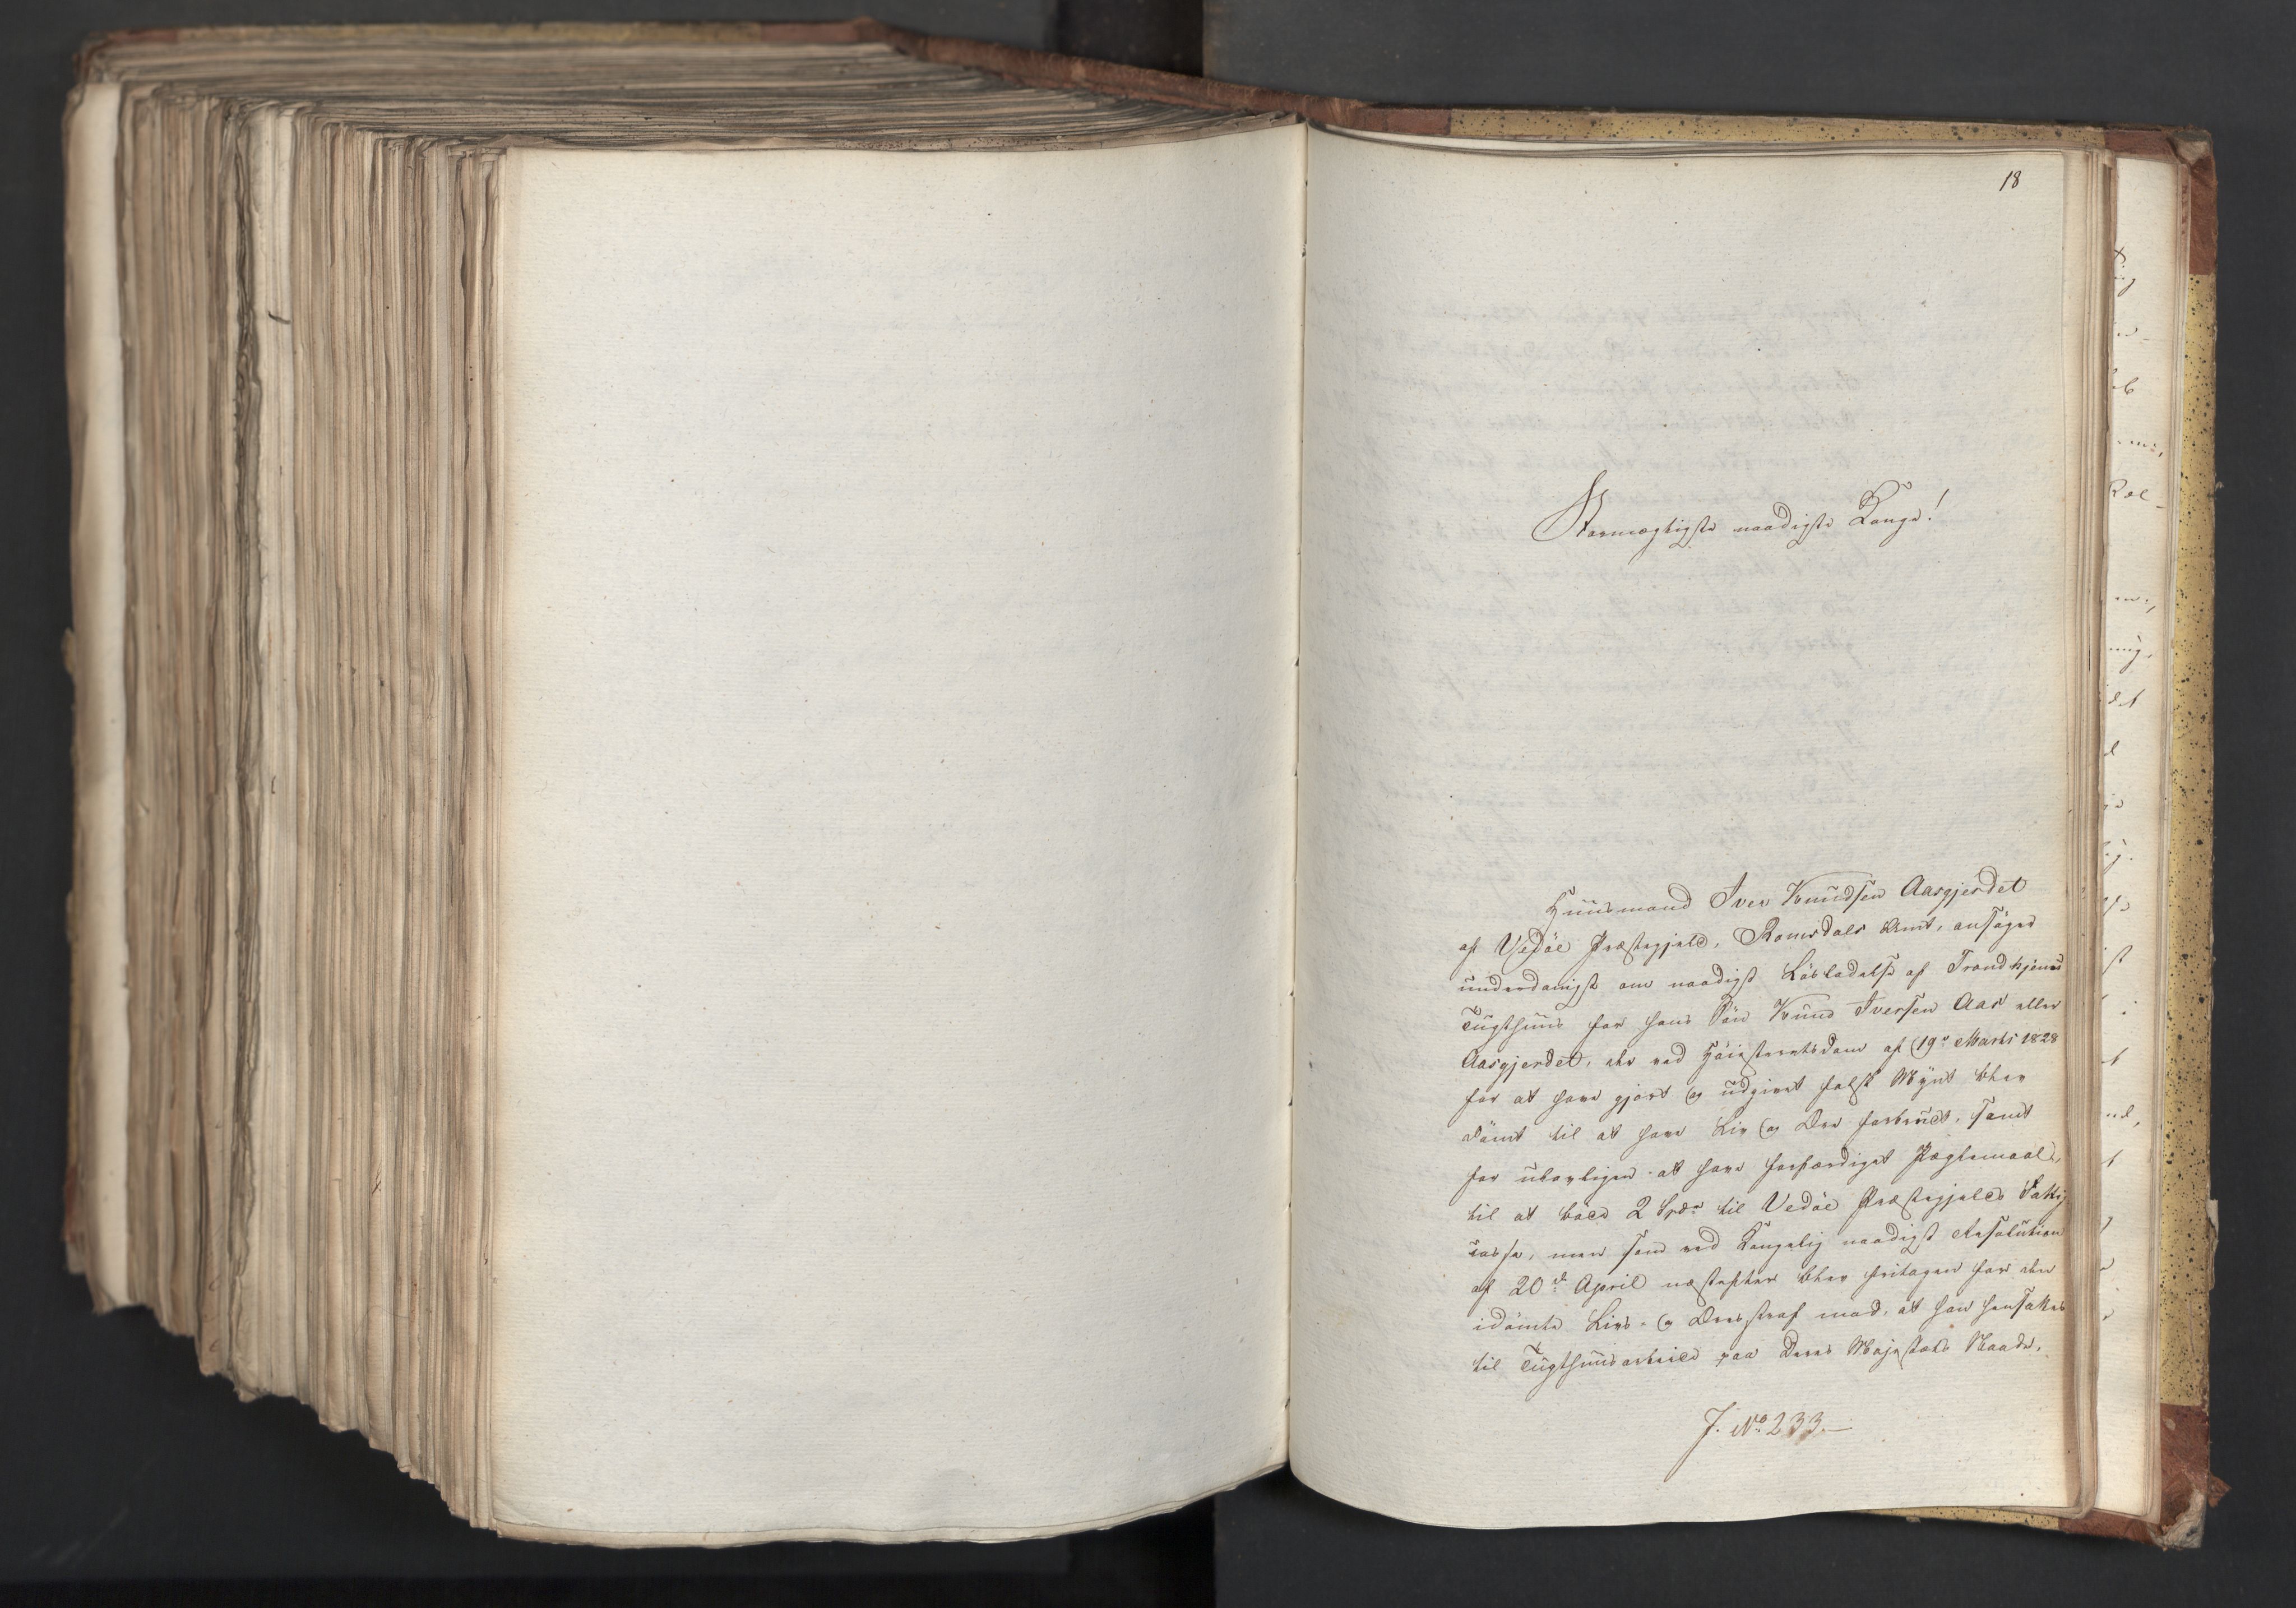 18
Stormægtigste naadigste Konge!
Huusmand Iver Knudsen Aasgjerdet
af Vedöe Præstegjeld, Romsdals Amt, ansöger
underdanigst om naadigst Lösladelse af Trondhjems
Tugthuus for hans Sön Knud Iversen Aas eller
Aasgjerdet, der ved Höiesteretsdom af 19de Marts 1828
for at have gjort og udgivet falsk Mÿnt blev
dömt til at have Liv og Ære forbrudt, samt
for ulovligen at have forfærdiget Pæglemaal,
til at böde 2 Spd. til Vedöe Præstegjelds Fattig
casse, men som ved Kongelig naadigst Resolution
af 20de April næstefter blev fritagen for den
idömte Livs- og Æresstraf mod, at han hensattes
til Tugthuusarbeide paa Deres Majestæts Naade.
J. No. 233.